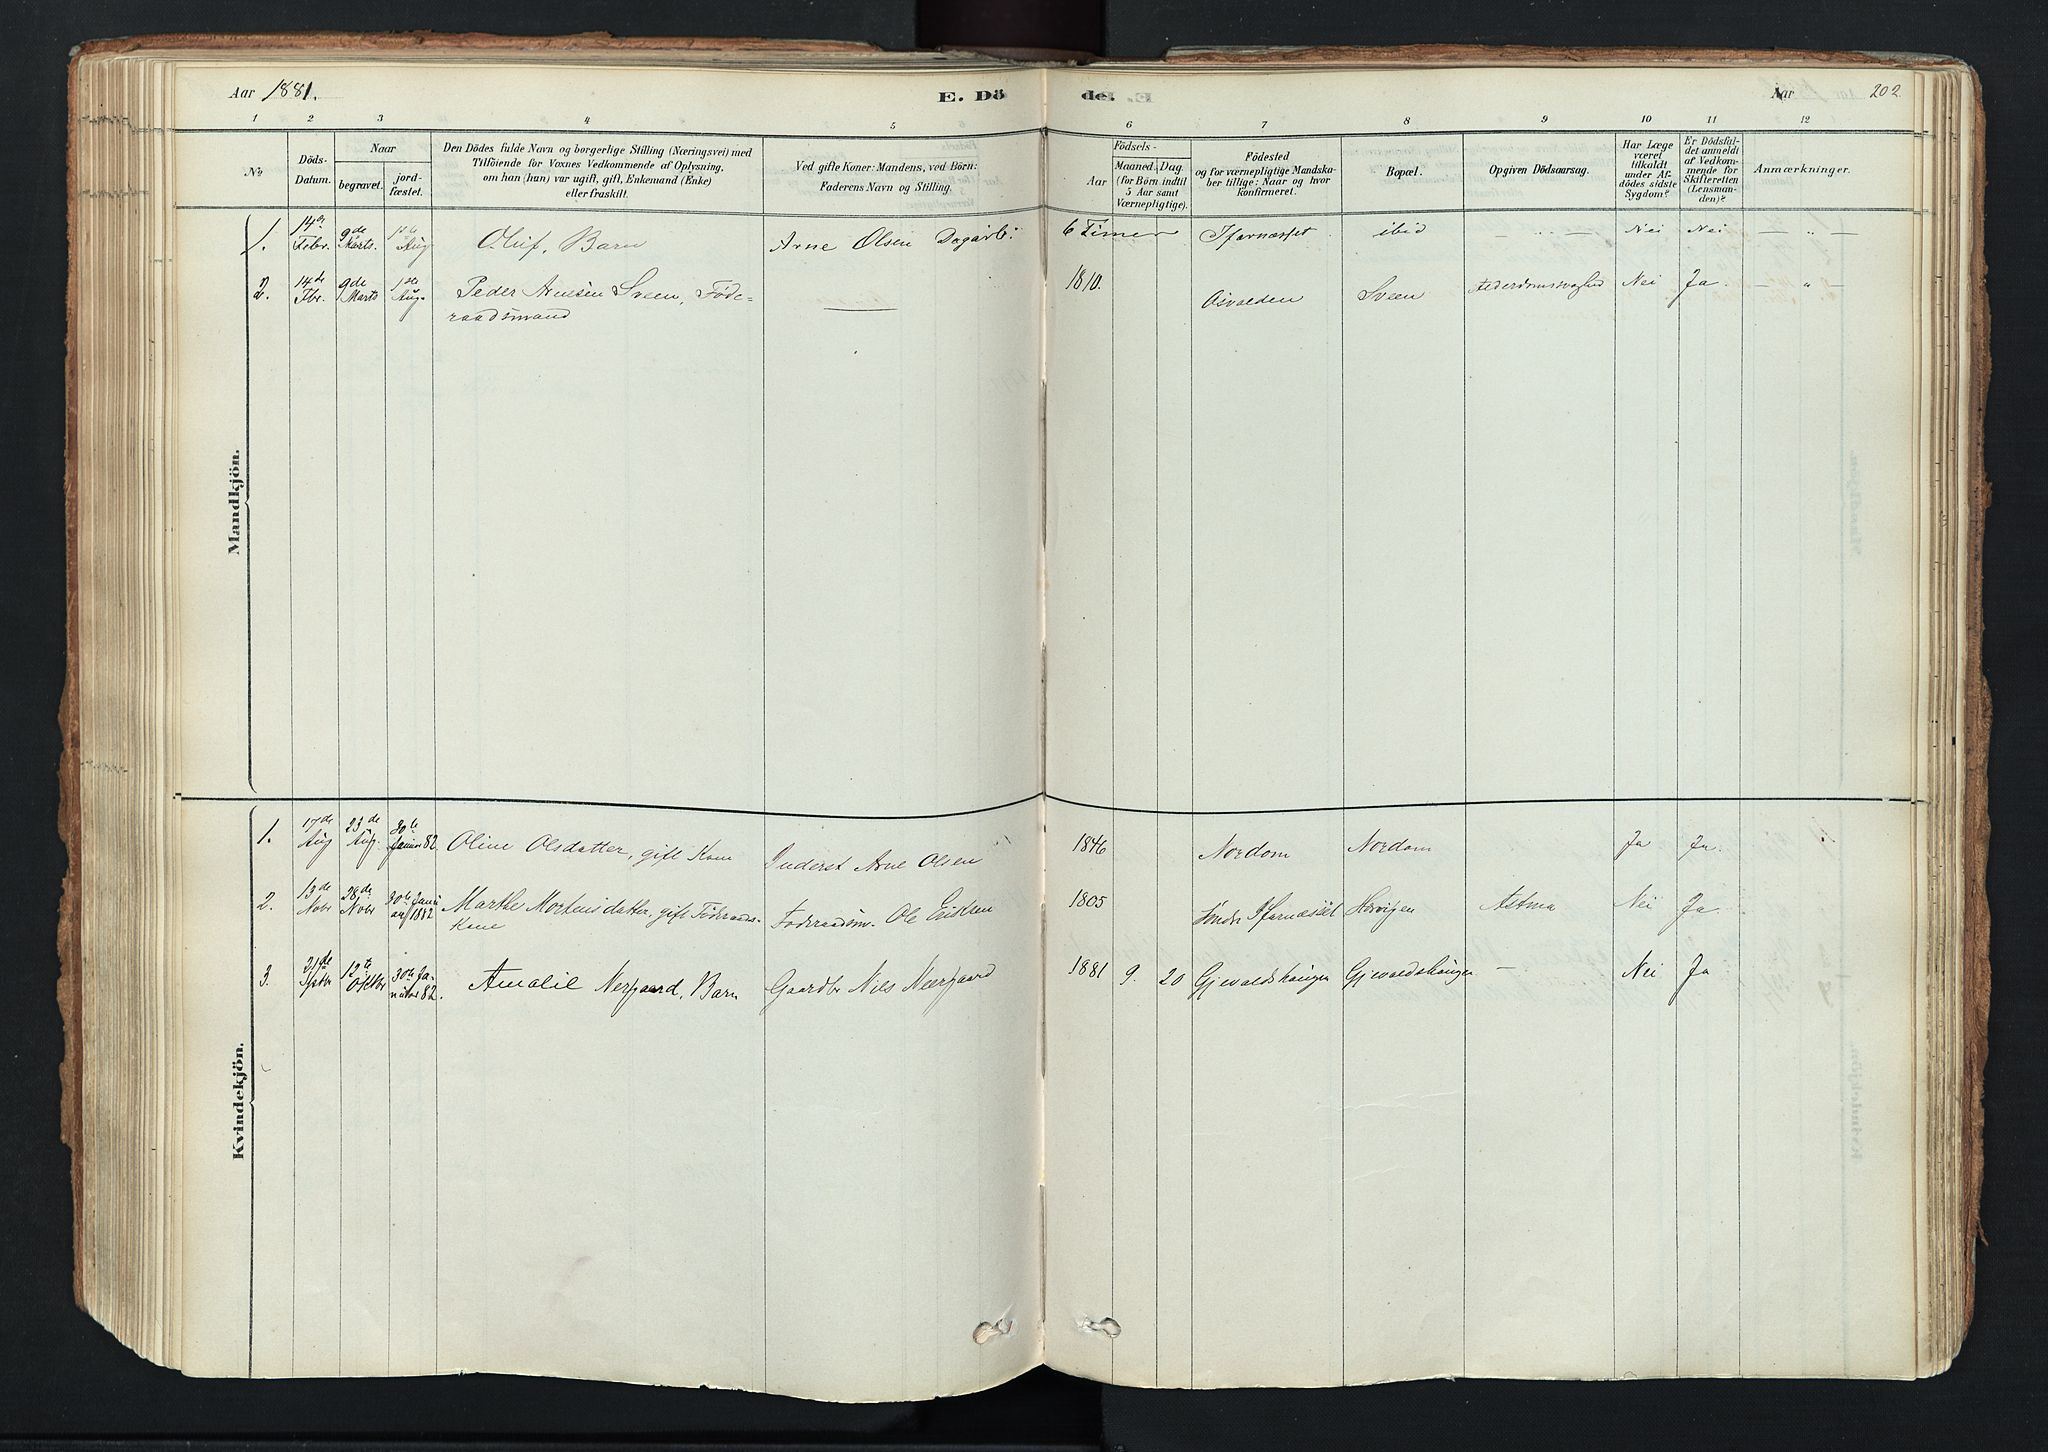 Aar 1881.
E. Dö
de.
Aar 202
1 2 3 4 5 6 7 8 9 10 11 12
No
Döds-
Datum.
Naar
begravet.
jord-
fæstet.
Den Dödes fulde Navn og borgerlige Stilling (Næringsvei) med
Tilföiende for Voxnes Vedkommende af Oplysning,
om han (hun) var ugift, gift, Enkemand (Enke)
eller fraskilt.
Ved gifte Koner: Mandens, ved Börn:
Faderens Navn og Stilling.
Födsels-
Aar
Maaned. Dag.
(for Börn indtil
5 Aar samt
Værnepligtige).
Födested
og for værnepligtige Mandska-
ber tillige: Naar og hvor
konfirmeret.
Bopæl.
Opgiven Dödsaarsag.
Har Læge
været
tilkaldt
under Af-
dödes sidste
Sygdom?
Er Dödsfal-
det anmeldt
af Vedkom-
mende for
Skifteretten
(Lensman-
den)?
Anmærkninger.
Mandkjön.
1. 14de Febr. 9de Marts. 1ste Aug Oluf, Barn Arne Olsen 6 Timer ibid — „ — Nei Nei — „ —
2. 14de Fbr. 9de Marts 1ste Aug. Peder Arnesen Sveen, Föde-
raadsmand — 1810. Sveen Nei Ja. — „ —
Kvindekjön.
1. 17de Aug 23de Aug. 30te Januar 82. Oline Olsdatter, gift Kone Inderst Arne Olsen 1846 Nordom Nordom Ja Ja.
2. 13de Nobr 28de Nobr 30te Janu
ar 1882 Marthe Mortensdatter, gift Föderaads-
Kone Föderaadsm. Ole Eriksen 1805 Astma Nei Ja.
3. 21de 12te Oktbr 30te Ja-
nuar 82. Amalie Nergaard, Barn Gaardbr Nils Neergaard 1881 9. 20 Gjevaldshaugen Gjevaldshaugen — Nei Ja